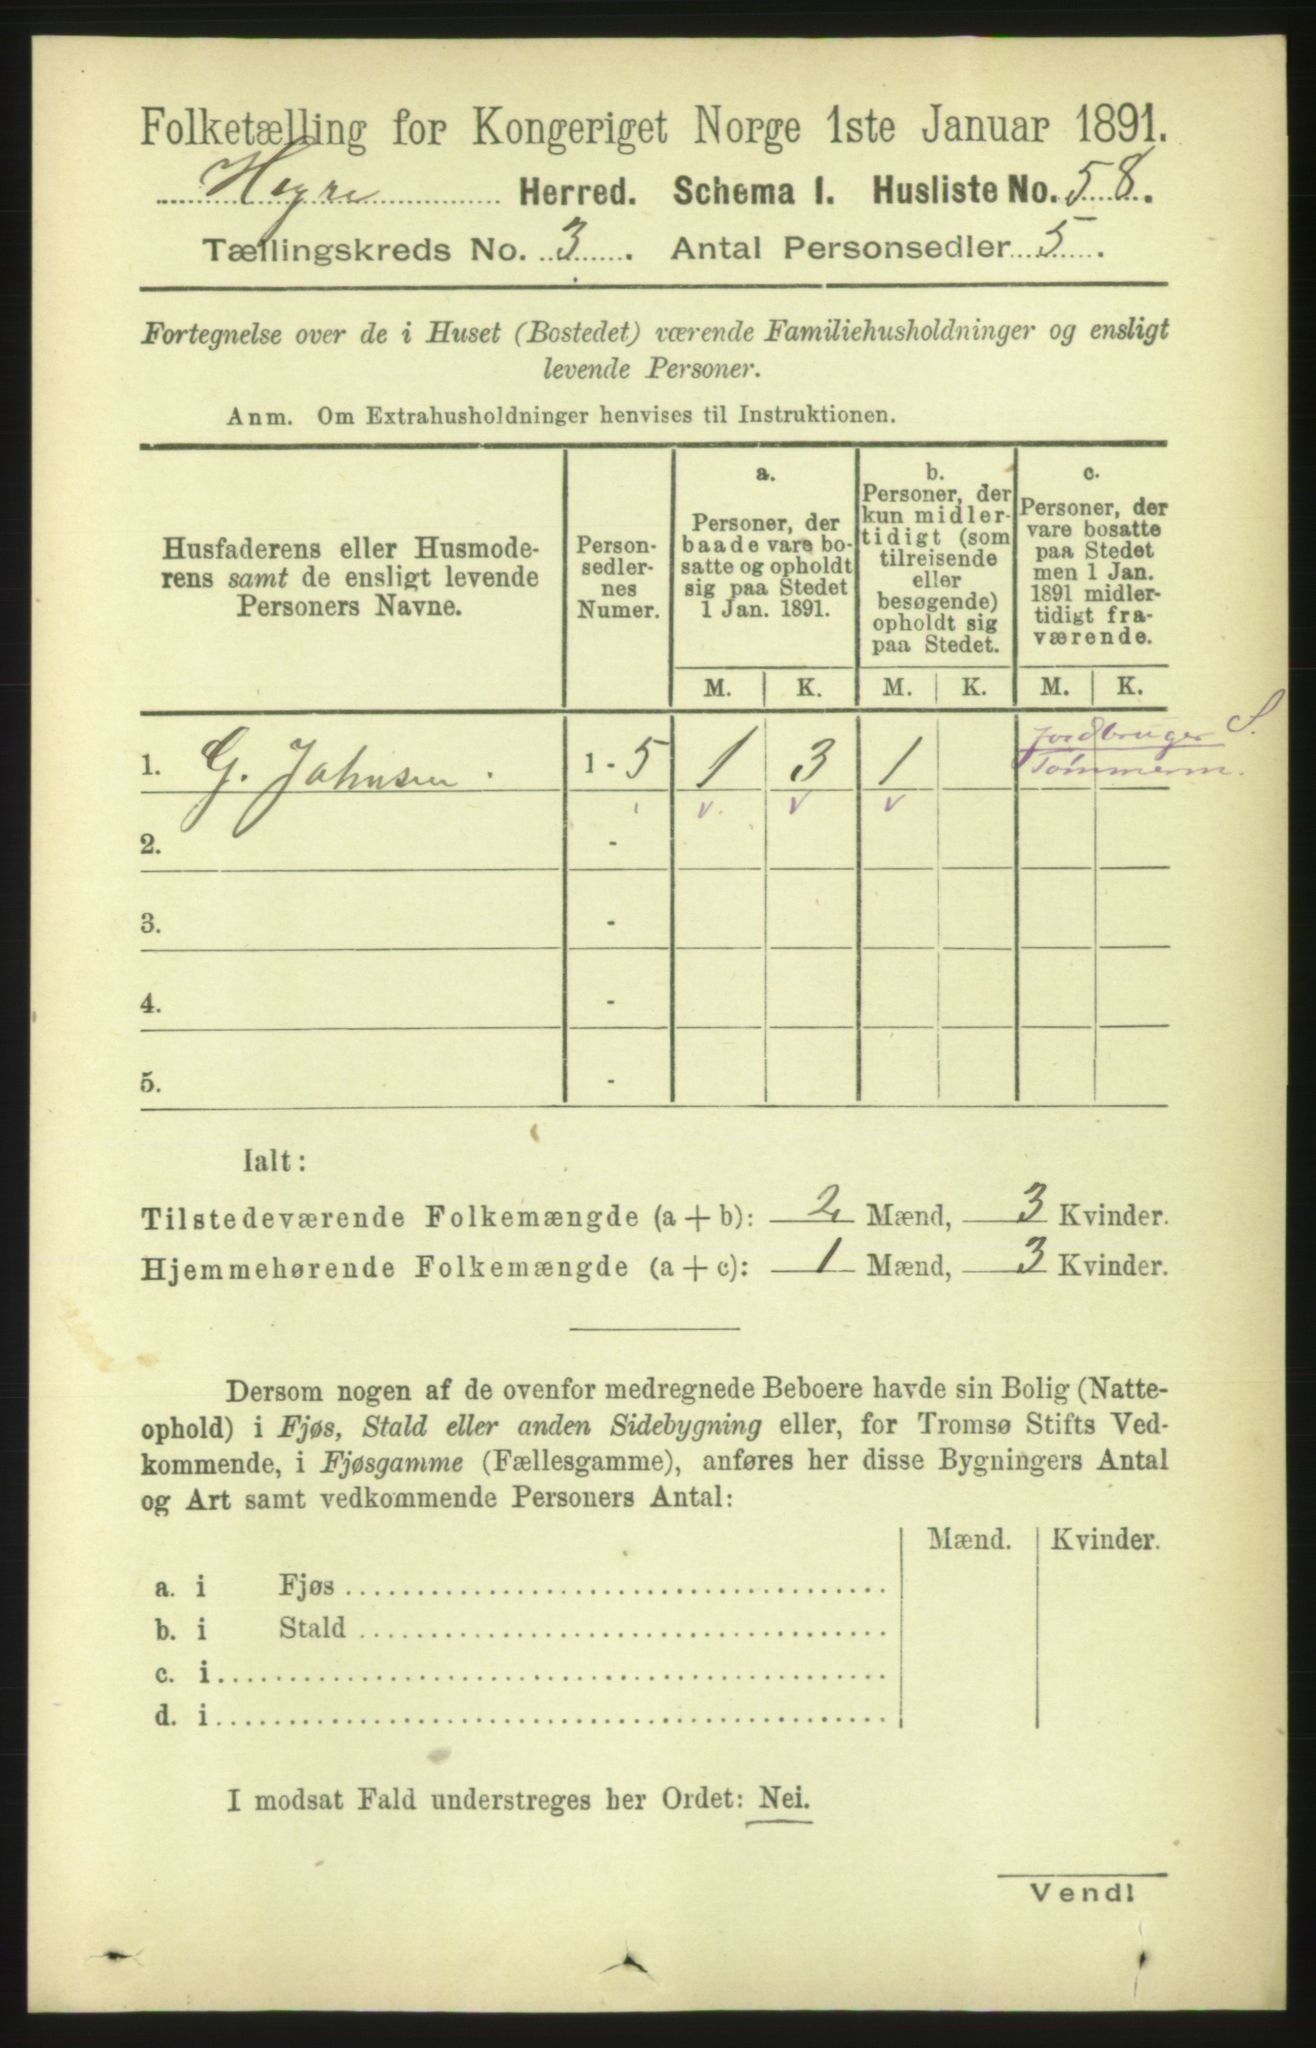 Folketælling for Kongeriget Norge 1ste Januar 1891.
Hegre Herred. Schema I. Husliste No. 58.
Tællingskreds No. 3. Antal Personsedler 5.
Fortegnelse over de i Huset (Bostedet) værende Familiehusholdninger og ensligt
levende Personer.
Anm. Om Extrahusholdninger henvises til Instruktionen.
Husfaderens eller Husmode-
rens samt de ensligt levende
Personers Navne.
Person-
sedler-
nes
Numer.
a.
Personer, der
baade vare bo-
satte og opholdt
sig paa Stedet
1 Jan. 1891.
b.
Personer, der
kun midler-
tidigt (som
tilreisende
eller
besøgende)
opholdt sig
paa Stedet.
c.
Personer, der
vare bosatte
paa Stedet
men 1 Jan.
1891 midler-
tidigt fra-
værende.
M. K. M. K. M. K.
Jordbruger S.
1. G. Johnsen. 1 - 5 1 3 1 Tømmerm.
v. v v
2. -
3. -
4. -
5. -
Ialt:
Tilstedeværende Folkemængde (a + b): 2 Mænd, 3 Kvinder.
Hjemmehørende Folkemængde (a + c): 1 Mænd, 3 Kvinder.
Dersom nogen af de ovenfor medregnede Beboere havde sin Bolig (Natte-
ophold) i Fjøs, Stald eller anden Sidebygning eller, for Tromsø Stifts Ved-
kommende, i Fjøsgamme (Fællesgamme), anføres her disse Bygningers Antal
og Art samt vedkommende Personers Antal:
Mænd. Kvinder.
a. i Fjøs
b. i Stald
c. i
d. i
I modsat Fald understreges her Ordet: Nei.
Vend!